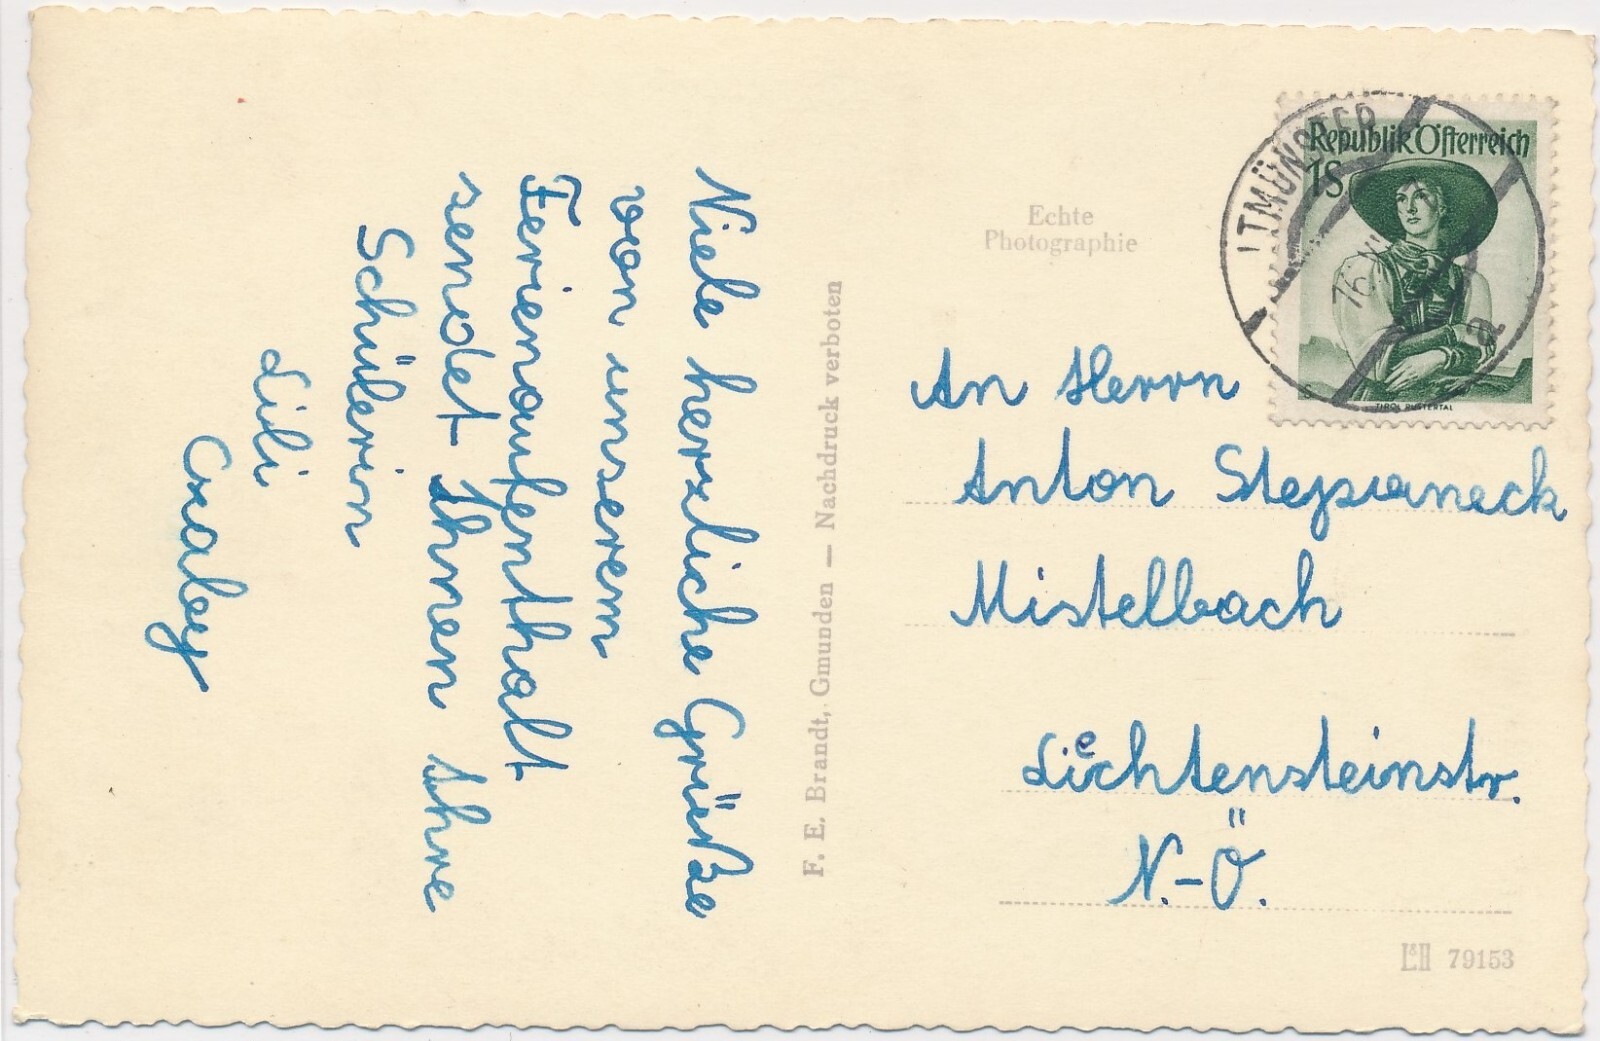 Viele herzliche Grüße
von unserem
Ferienaufenthalt
sendet Ihnen Ihre
Schülerin
Lili
F. E. Brandt, Gmunden — Nachdruck verboten
Echte
Photographie
Republik Österreich
1S
TIROL PUSTERTAL
LTMÜNSTER
16.
a
An Herrn
Anton Stepsaneck
Mistelbach
Liechtensteinstr.
N.-Ö.
L&H 79153